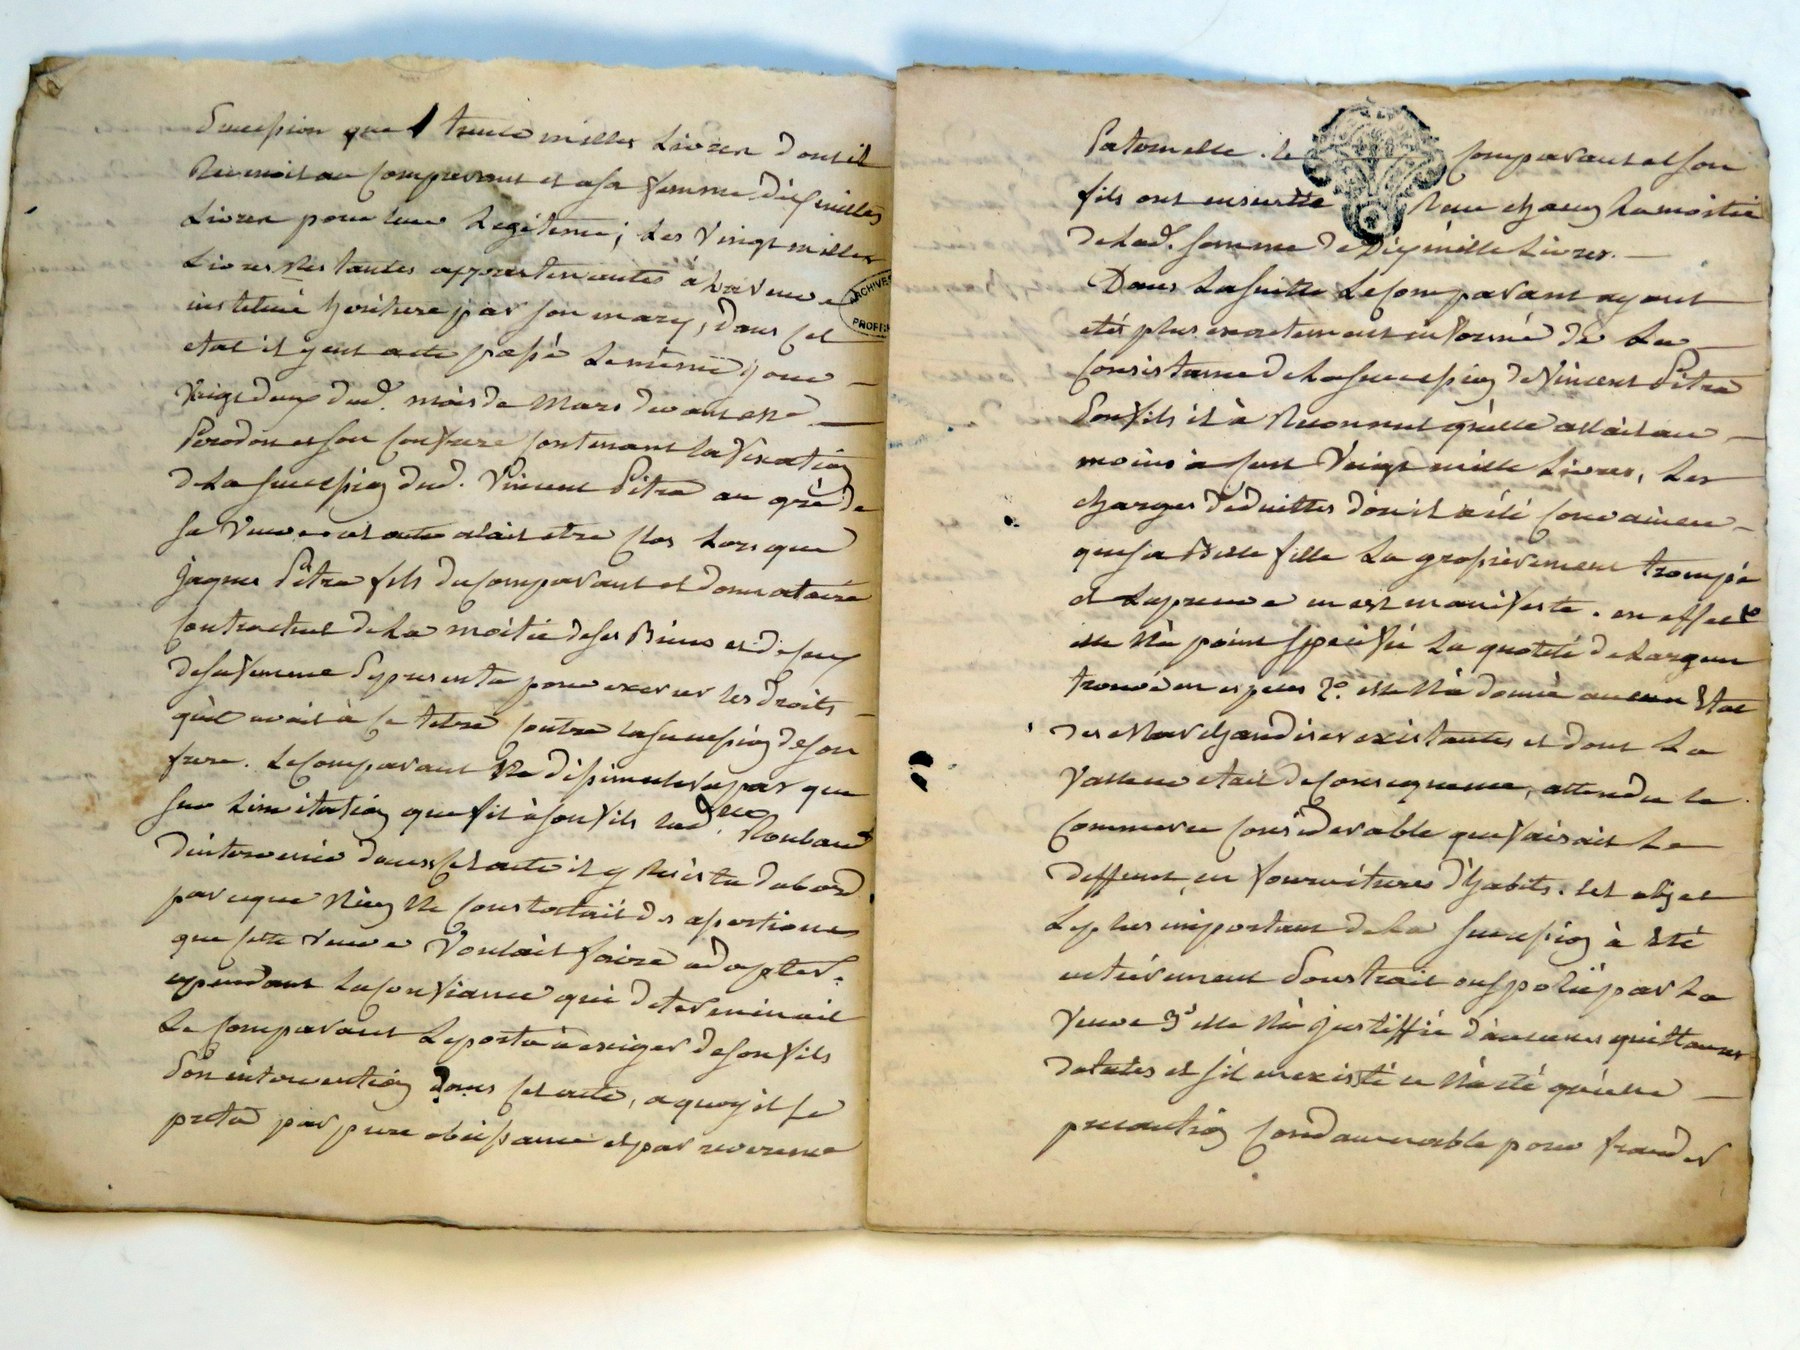 Succession que trente milles Livres dont il
Revenoit au Comparant et a sa femme dix milles
Livres pour leur Legitime; Les vingt milles
Livres Restantes appartenantes à La veuve
instituée heritiere par son mary, dans cet
etat il y eut acte passé Le même jour
vingt deux dud. mois de Mars devant Me
Perodon et son Confrere contenant la fixation
de La succession dud. Vincent Pitra au gré de
sa veuve cet acte alait etre clos Lors que
Jaques Pitra fils du comparant et donnataire
Contractuel de La moitié de ses Biens et de ceux
de sa femme se presenta pour exercer les droits
qu'il avait à ce titre contre la succession de son
frere. Le comparant Ne dissimulera pas que
sur L'invitation que fit à son fils lad. ve Roubaud
d'intervenir dans cet acte il y Resista d'abord
parceque Rien Ne constatait des assertions
que cette veuve Voulait faire adopter.
cependant La confiance qui determinait
Le Comparant Le porta à exiger de son fils
son intervention dans cet acte, a quoy il se
preta par pure obeissance et par reverence
Paternelle. le Comparant et son
fils ont ensuitte Reçu chacun La moitié
de Lad. somme de Dix mille Livres.
Dans La suitte Le Comparant ayant
eté plus exactement informé de La
Consistance de La succession de Vincent Pitra
son fils il à Reconnut qu'elle allait au
moins à cent vingt mille Livres, Les
charges deduittes d'ou il a été convaincu
que sa Belle fille La grossièrement trompé
et La preuve en est manifeste. en effet 1º
elle N'a point specifié La quotité de L'argent
trouvé en especes 2º. elle N'a donné aucun Etat
des Marchandises existantes et dont La
valleur etait de Consequence, attendu le
Commerce Considerable que faisait Le
deffunt en fournitures d'habits. cet objet
Le plus important de La succession à Eté
entièrement soustrait ou spolié par La
veuve 3º elle N'a justiffié d'aucunes quittances
datées et s'il en existe ce N'a été qu'une
precaution Condamnable pour frauder
ARCHIVES